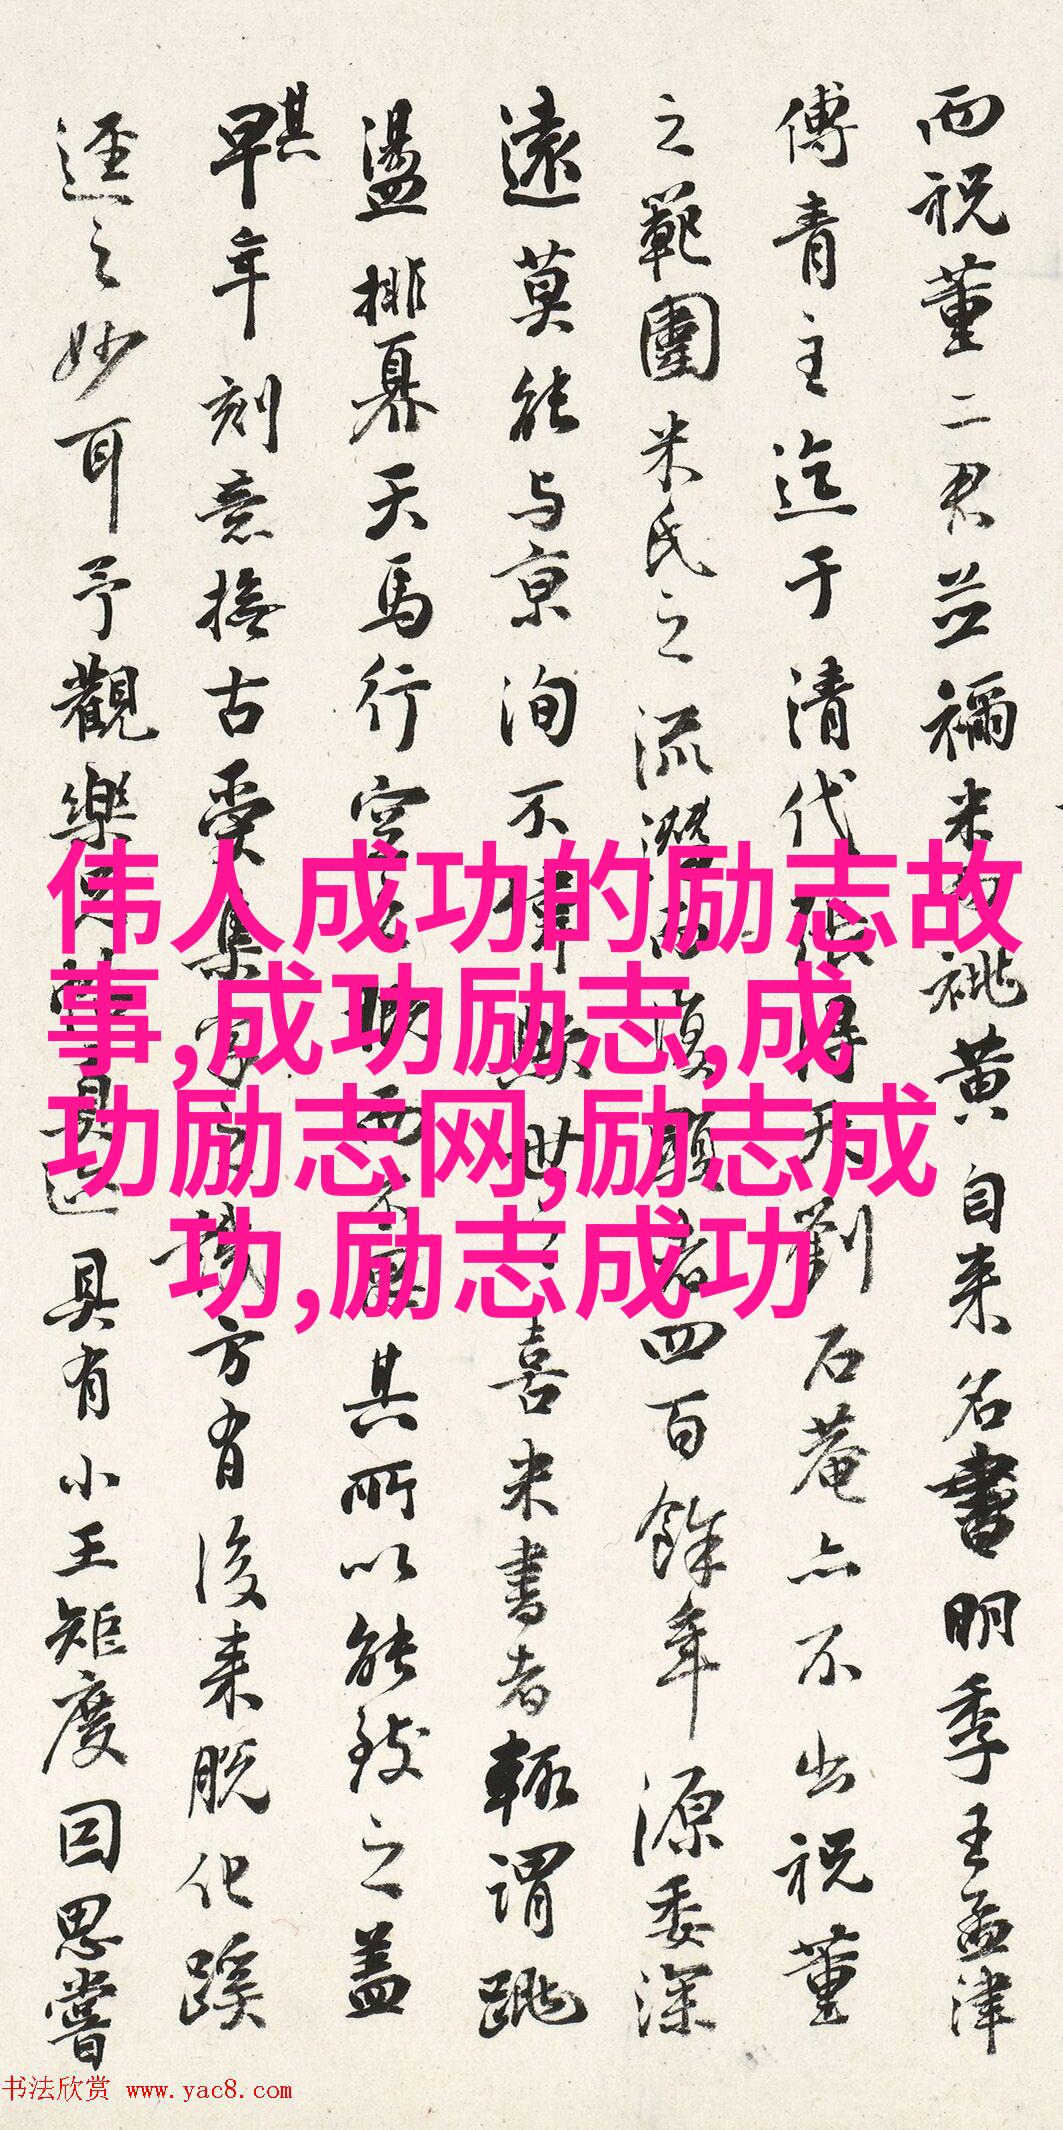 而祝董二君並禰米 祧黄自来名書明季王孟津
傅青主迄于清代張得天劉石菴亦不出祝董
之範圍米氏之流 復顯者四百餘年源委深
遠莫能与京洵不 世 喜米書者輒謂跳
盪排奡天馬行空 而不 其所以能致之蓋
其早年刻意撫古 集 方有後来脱化蹊
逕之妙耳予觀樂 具有小王矩度回思嘗
伟人成功的励志故
事,成功励志,成
功励志网,励志成
功,励志成功
书法欣赏 www.yac8.com